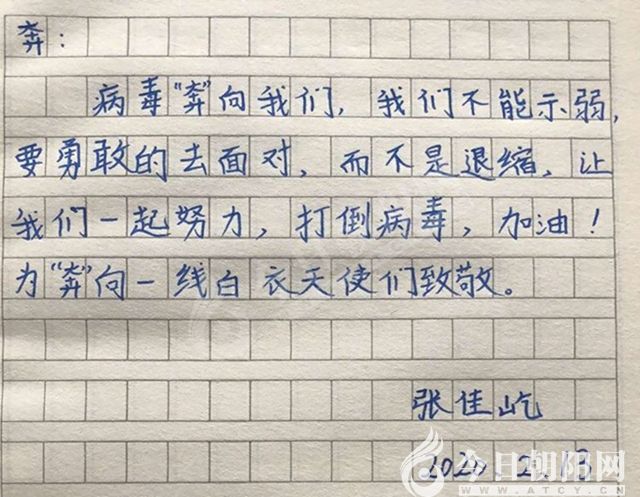 奔:
病毒“奔”向我们,我们不能示弱,
要勇敢的去面对,而不是退缩,让
我们一起努力,打倒病毒,加油!
为“奔”向一线白衣天使们致敬。
张佳屹
2020 2.13
今日朝阳网
WWW.ATCY.CN